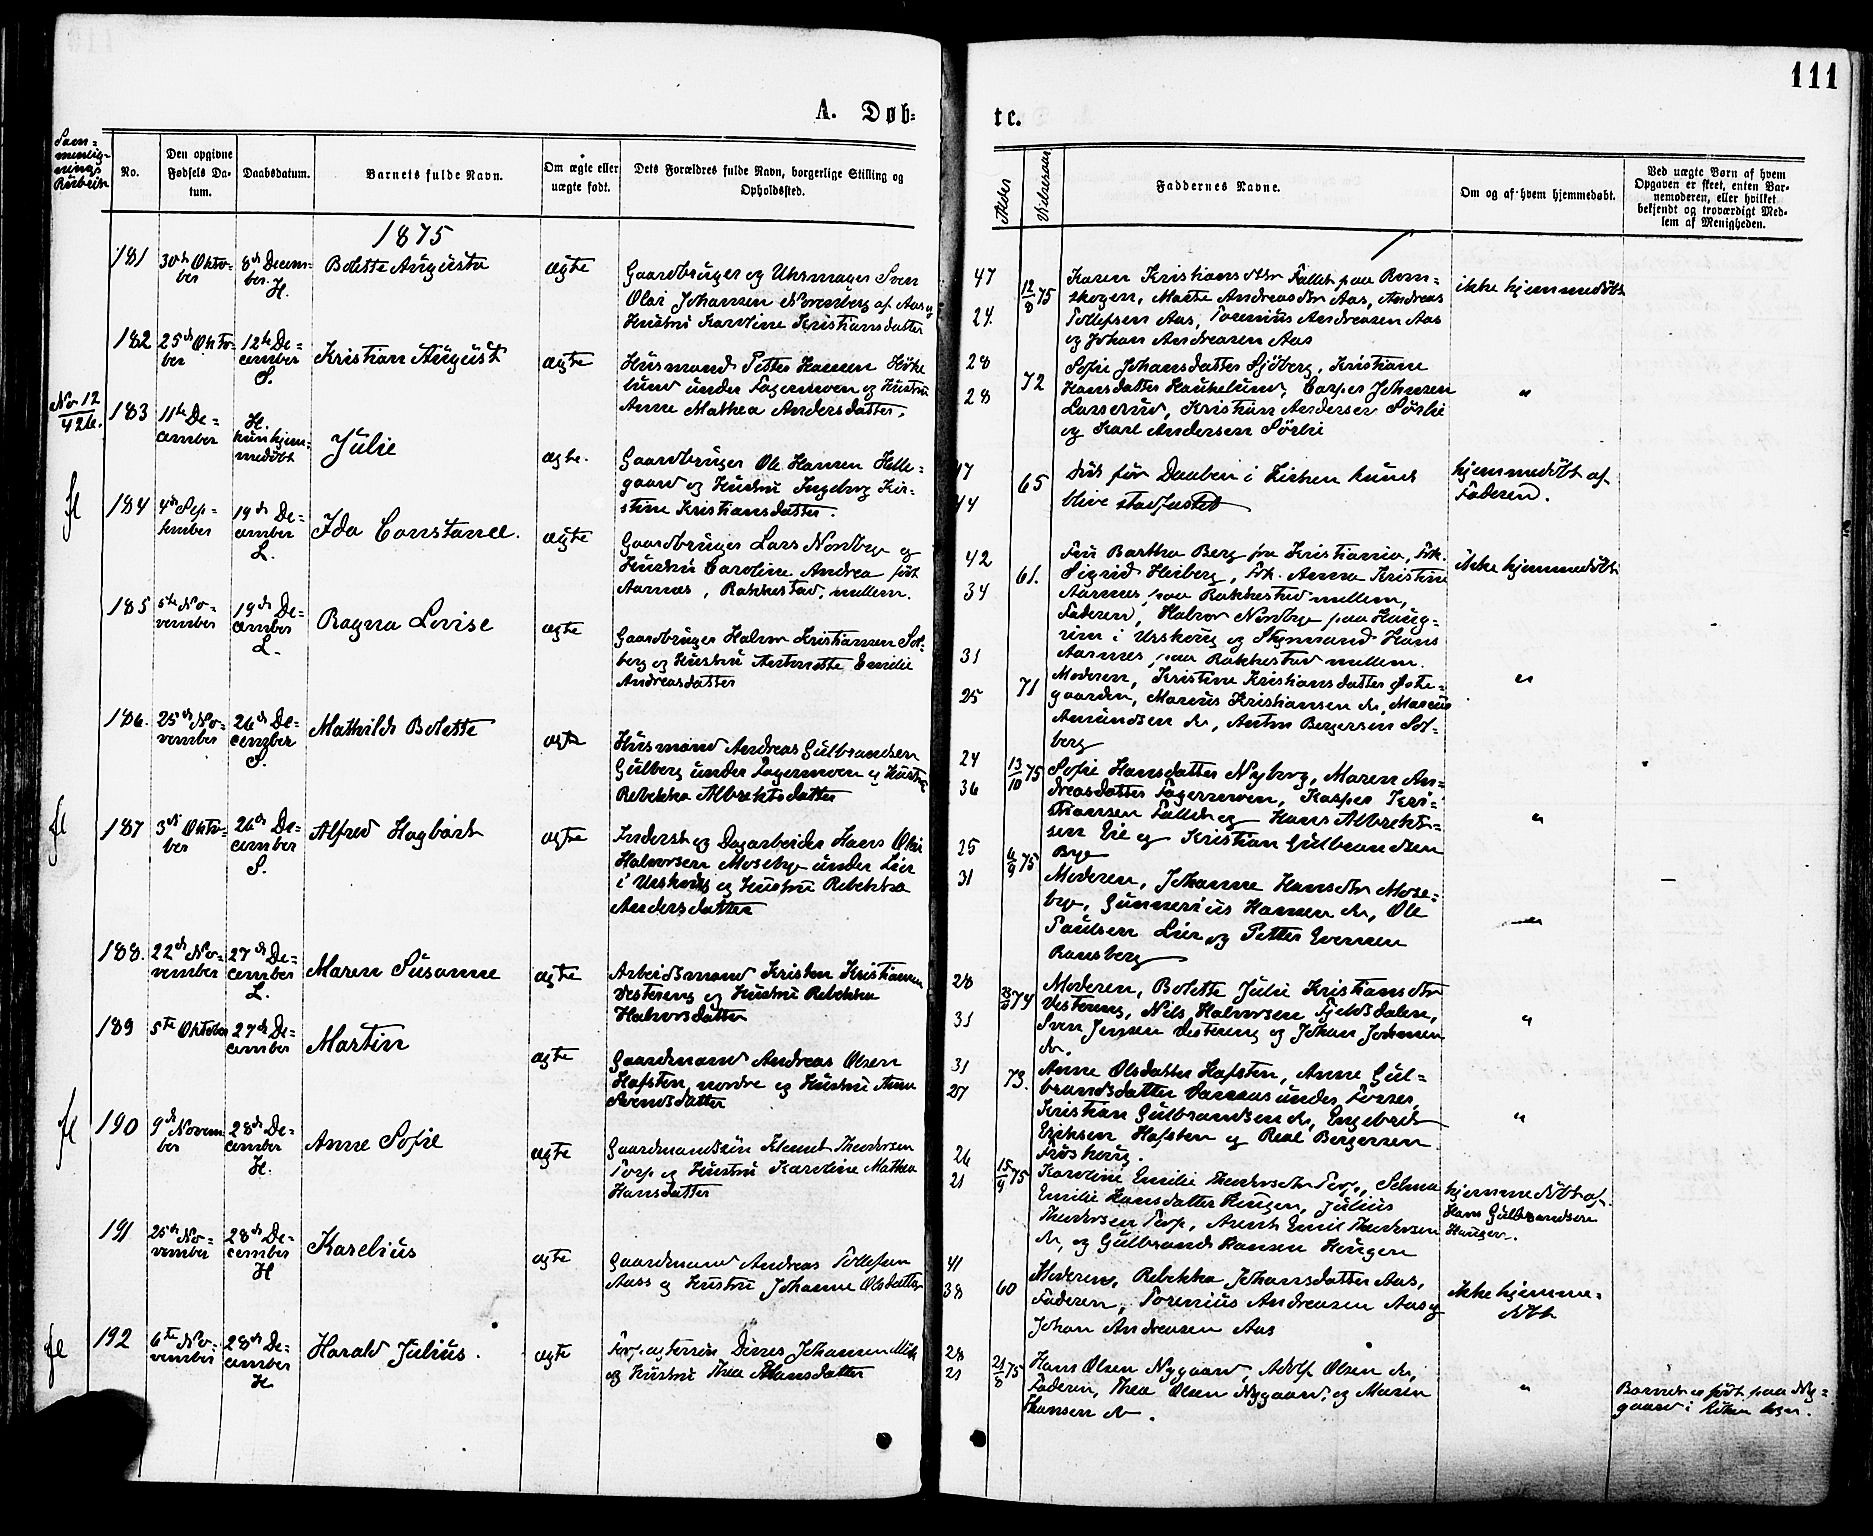 111
A. Døb-
te.
Sam-
menlig-
nings
Rubrik
No.
Den opgivne
Fødsels Da-
tum.
Daabsdatum.
Barnets fulde Navn.
Om ægte eller
uægte født.
Dets Forældres fulde Navn, borgerlige Stilling og
Opholdssted.
Alder
Vielsesaar
Faddernes Navne.
Om og af hvem hjemmedøbt.
Ved uægte Børn af hvem
Opgaven er skeet, enten Bar-
nemoderen, eller hvilket
bekjendt og troværdigt Med-
lem af Menigheden.
1875
181
30te Okto-
ber
8de Decem-
ber.
H.
Bolette Augusta
ægte
Gaardbruger og Uhrmager Sven
Olai Johansen Norenberg af Aas og
Hustru Karoline Kristiansdatter
47
24.
12/8 75
Karen Kristiansdtr Fallet paa Røm-
skogen, Marte Andreasdtr Aas, Andreas
Tollefsen Aas, Torenius Andreasen Aas
og Johan Andreasen Aas
ikke hjemmedøbt
182
25de Okto-
ber
12te De-
cember
S.
Kristian August
ægte
Husmand Petter Hansen Høke-
lund under Fagermoen og Hustru
Anne Mathea Andersdatter.
28
28
72
Sofie Johansdatter Sjøberg, Kristiane
Hansdatter Haukelund, Casper Johnsen
Lasserud, Kristian Andersen Sørlie
og Karl Andersen Sørlie
"
No 12
42te.
183
11te De-
cember
H.
kun hjem-
medøbt
Julie
ægte.
Gaardbruger Ole Hansen Helle-
gaard og Hustru Ingeborg Kir-
stine Kristiansdatter.
47
44
65
Død før Daaben i Kirken kunde
blive stadfæstet
hjemmedøbt af
Faderen.
fl
184
4de Sep-
tember
19de De-
cember
L.
Ida Constance.
ægte
Gaardbruger Lars Nordbye og
Hustru Caroline Andrea født
Aarnæs, Rakkestad, mellem.
42
34
61.
Fru Bartha Berg fra Kristiania, Frk.
Sigrid Heiberg, Frk. Anna Kristine
Aarnæs paa Rakkestad mellem,
Faderen, Halvor Nordbye paa Haug-
rim i Urskoug og Styrmand Hans
Aarnæs paa Rakkestad mellem.
ikke hjemmedøbt
185
5te No-
vember
19de De-
cember
L.
Ragna Lovise
ægte
Gaardbruger Halvor Kristiansen Sol-
berg og Hustru Antonette Emilie
Andreasdatter
31
25
71
Moderen, Kristine Kristiansdatter Øste-
gaarden, Marius Kristiansen do, Marcus
Amundsen do, Anton Bergersen Sol-
berg
"
186.
25de No-
vember
26de De-
cember
S.
Mathilde Bolette
ægte
Husmand Andreas Gulbrandsen
Gulberg under Fagermoen og Hustru
Rebekka Albrektsdatter
24
36
13/10 75
Sofie Hansdatter Nyborg, Maren An-
dreasdatter Fagermoen, Kasper Kri-
stiansen Fallet og Hans Albrekt-
sen Eie og Kristian Gulbrandsen
Bye
"
fl
187
3die Okto-
ber
26de De-
cember
S.
Alfred Hagbart
ægte
Inderst og Dagarbeider Hans Olai
Halvorsen Mosebye under Lier
i Urskoug og Hustru Rebekka
Andersdatter
25
31
4/9 75
Moderen, Johanne Hansdtr Mose-
bye, Gunnerius Hansen do, Ole
Paulsen Lier og Petter Evensen
Ransberg
"
188.
22de No-
vember
27de De-
cember
L.
Maren Susanne
ægte
Arbeidsmand Kristen Kristiansen
Vestereng og Hustru Rebekka
Halvorsdatter
28
31
74
Moderen, Bolette Julie Kristiansdtr
Vestereng, Nils Halvorsen Fjeldsdalen,
Sven Jensen Vestereng og Johan Johnsen
do.
"
189
5te Oktober
27de De-
cember
Martin
ægte
Gaardmand Andreas Olsen
Hafsten, nordre og Hustru Anne
Svendsdatter
31
27
73.
Anne Olsdatter Hafsten, Anne Gul-
brandsdatter Darnas under Fosser,
Kristian Gulbrandsen do, Engebret
Eriksen Hafsten og Real Bergersen
Frøshaug.
"
fl
190
9de Novem
ber
28de De-
cember
H.
Anne Sofie
ægte
Gaardmandssøn Klemet Theodorsen
Torp og Hustru Karoline Mathea
Hansdatter
26
21
15/9 75
Karoline Emilie Theodorsdtr Torp, Selma
Emilie Hansdatter Haugen, Julius
Theodorsen Torp, Arent Emil Theodorsen
do, og Gulbrand Hansen Haugen
hjemmedøbt af
Hans Gulbrandsen
Haugen.
191
25de No-
vember
28de De-
cember
H
Karelius
ægte
Gaardmand Andreas Tollefsen
Aass og Hustru Johanne Olsdatter
41
38
60
Moderen, Rebekka Johansdatter Aas,
Faderen, Torenius Andreasen Aas og
Johan Andreasen Aas
ikke hjemme-
døbt
fl
192
6te No-
vember
28de De-
cember
H.
Harald Julius.
ægte
Dines Johansen
og Hustru Thea Hansdatter
28
21
21/8 75
Hans Olsen Nygaard, Adolf Olsen do,
Faderen, Thea Olsen Nygaard, og Maren
Hansen do.
"
Barnet er født paa Ny-
gaard i